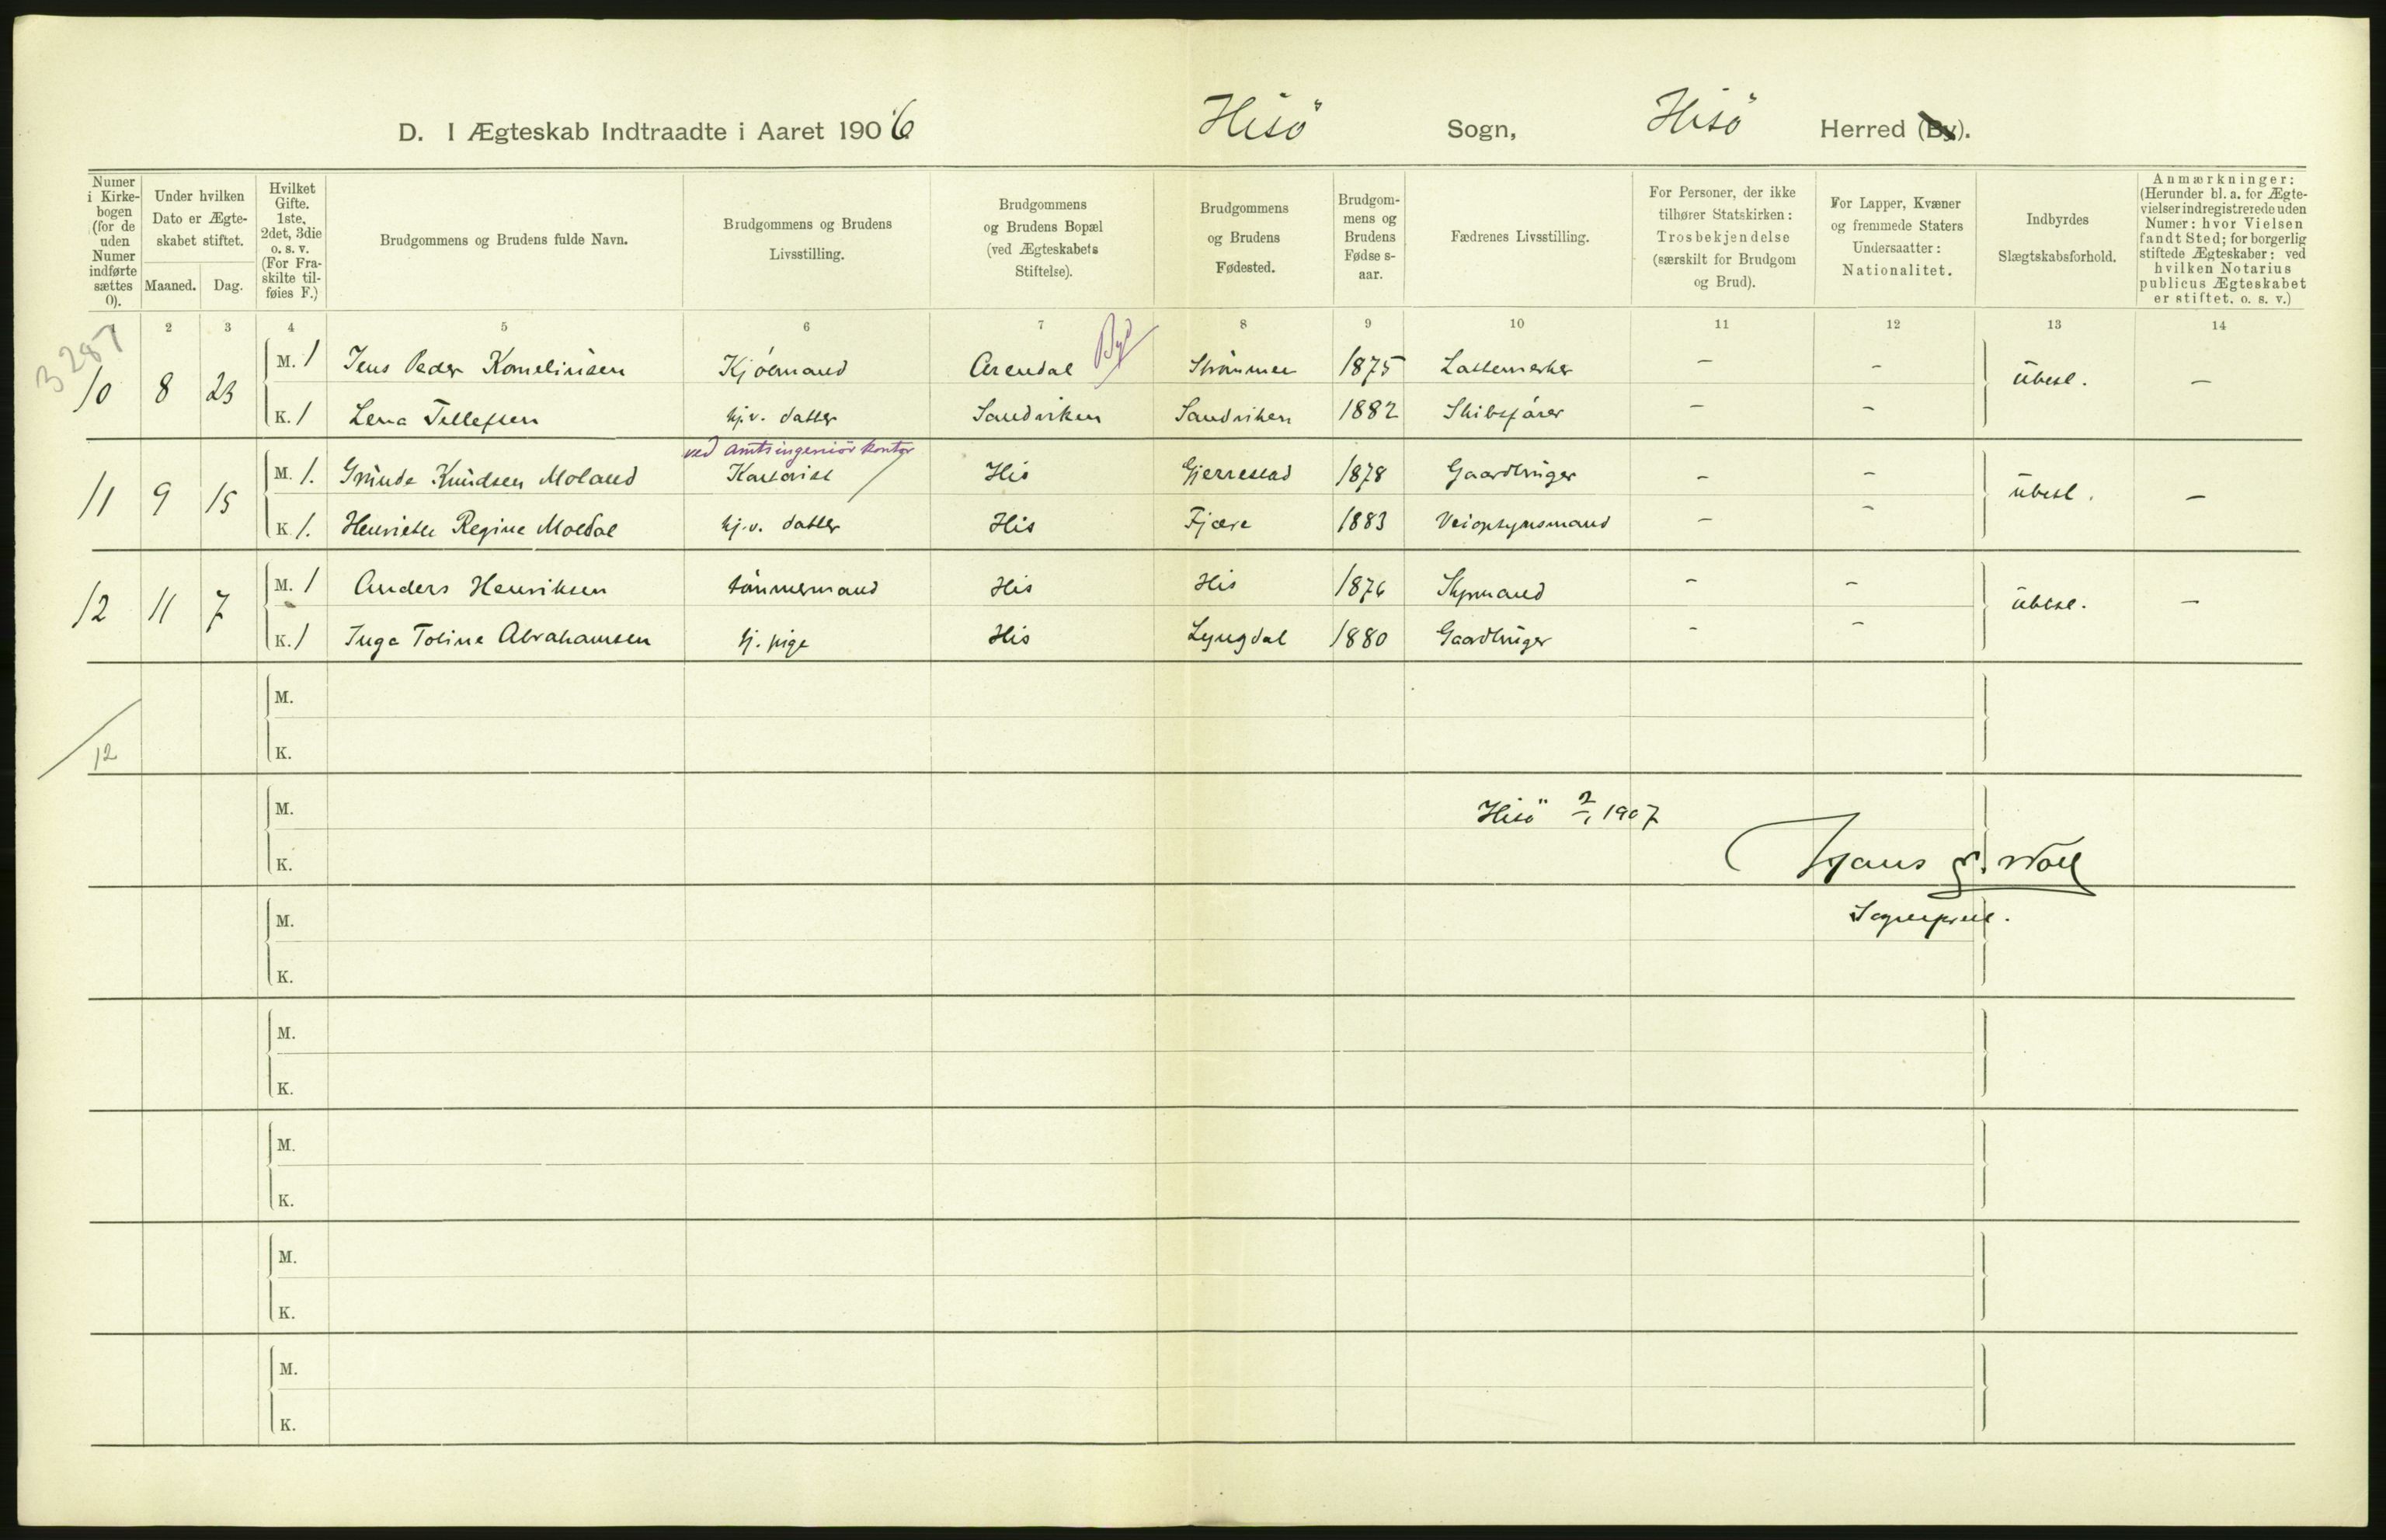 D. I Ægteskab Indtraadte i Aaret 1906 Hisö Sogn, Hisö Herred (By).
Numer i Kirkebogen (for de uden Numer indførte sættes 0).
Under hvilken Dato er Ægteskabet stiftet.
Maaned. Dag.
Hvilket Gifte. 1ste, 2det, 3die o. s. v. (For Fraskilte tilføies F.)
Brudgommens og Brudens fulde Navn.
Brudgommens og Brudens Livsstilling.
Brudgommens og Brudens Bopæl (ved Ægteskabets Stiftelse).
Brudgommens og Brudens Fødested.
Brudgommens og Brudens Fødselsaar.
Fædrenes Livsstilling.
For Personer, der ikke tilhører Statskirken: Trosbekjendelse (særskilt for Brudgom og Brud).
For Lapper, Kvæner og fremmede Staters Undersaatter: Nationalitet.
Indbyrdes Slægtskabsforhold.
Anmærkninger: (Herunder bl. a. for Ægtevielser indregistrerede uden Numer: hvor Vielsen fandt Sted; for borgerlig stiftede Ægteskaber: ved hvilken Notarius publicus Ægteskabet er stiftet, o. s. v.)
2 3 4 5 6 7 8 9 10 11 12 13 14
3287
10 8 23 M. 1 Jens Peder Kornelinsen Kjösmand Arendal Byd Strömmen 1875 Lastemerker - - übesl. -
K. 1 Lena Tellefsen hj.v. datter Sandviken Sandviken 1882 Skibsförer - -
ved amtsingeniörkontor
11 9 15 M. 1. Günde Knüdsen Moland Kontorist His Gjerrestad 1878 Gaardbrüger - - übesl. -
K 1. Henriette Regine Moldal hj.v. datter His Fjære 1883 Veiopsynsmand - -
12 11 7 M. 1 Anders Henriksen tömmermand His His 1876 Styrmand - - übesl. -
K. 1 Inga Toline Abrahamsen tj. pige His Lyngdal 1880 Gaardbrüger - -
M.
K.
12
M.
Hisö 2/1 1907
K.
Hans G. Woll
M.
Sogneprest.
K.
M.
K.
M.
K.
M.
K.
M.
K.